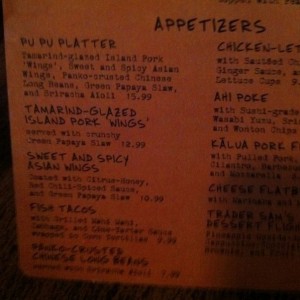 APPETIZERS
PU PU PLATTER
Tamarind-glazed Island Pork
'Wings', Sweet and Spicy Asian
Wings, Panko-crusted Chinese
Long Beans, Green Papaya Slaw,
and Sriracha Aioli 15.99
TAMARIND-GLAZED
ISLAND PORK 'WINGS'
served with crunchy
Green Papaya Slaw 12.99
SWEET AND SPICY
ASIAN WINGS
Coated with Citrus-Honey,
Red Chili-Spiced Sauce,
and Green Papaya Slaw 10.99
FISH TACOS
with Grilled Mahi Mahi,
Cabbage, and Lime-Tartar Sauce
wrapped in Corn Tortillas 9.99
PANKO-CRUSTED
CHINESE LONG BEANS
served with Sriracha Aioli 7.99
CHICKEN-LET
with Sautéed Ch
Ginger Sauce, a
Lettuce
AHI POKE
with Sushi-grade
Wasabi Tobi, Sri
and Wonton Chips
KĀLUA PORK F
with Pulled Pork,
Cilantro, Barbec
and Mozzarella
CHEESE FLATB
with Marinara
TRADER SAM'S
DESSERT FLIG